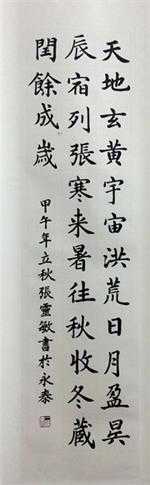 天地玄黃宇宙洪荒日月盈昃
辰宿列張寒来暑往秋收冬藏
閏餘成歲
甲午年立秋張靈敏書於永泰